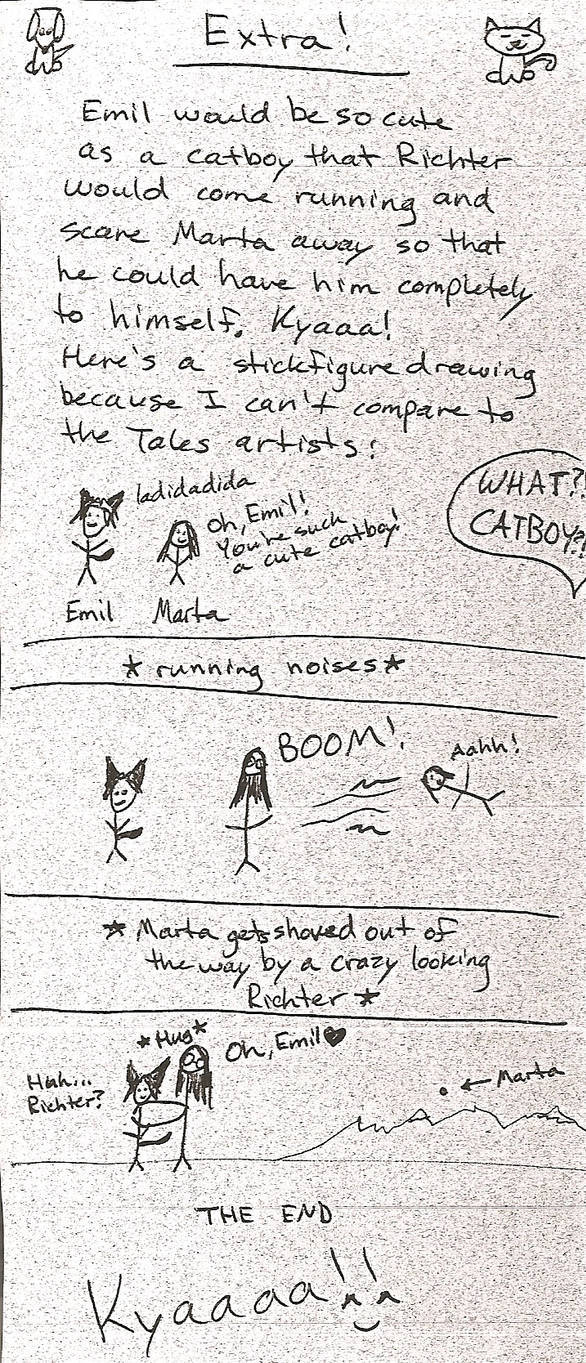 Extra!
Emil would be so cute
as a catboy that Richter
would come running and
scare Marta away so that
he could have him completely
to himself. Kyaaa!
Here's a stickfigure drawing
because I can't compare to
the Tales artists:
ladidadida
Oh, Emil!
You're such
a cute catboy!
WHAT?!
CATBOY?!
Emil Marta
*running noises*
BOOM!
Aahh!
*Marta gets shoved out of
the way by a crazy looking
Richter*
*Hug*
Oh, Emil♥
Huh...
Richter?
← Marta
THE END
Kyaaaaa!!